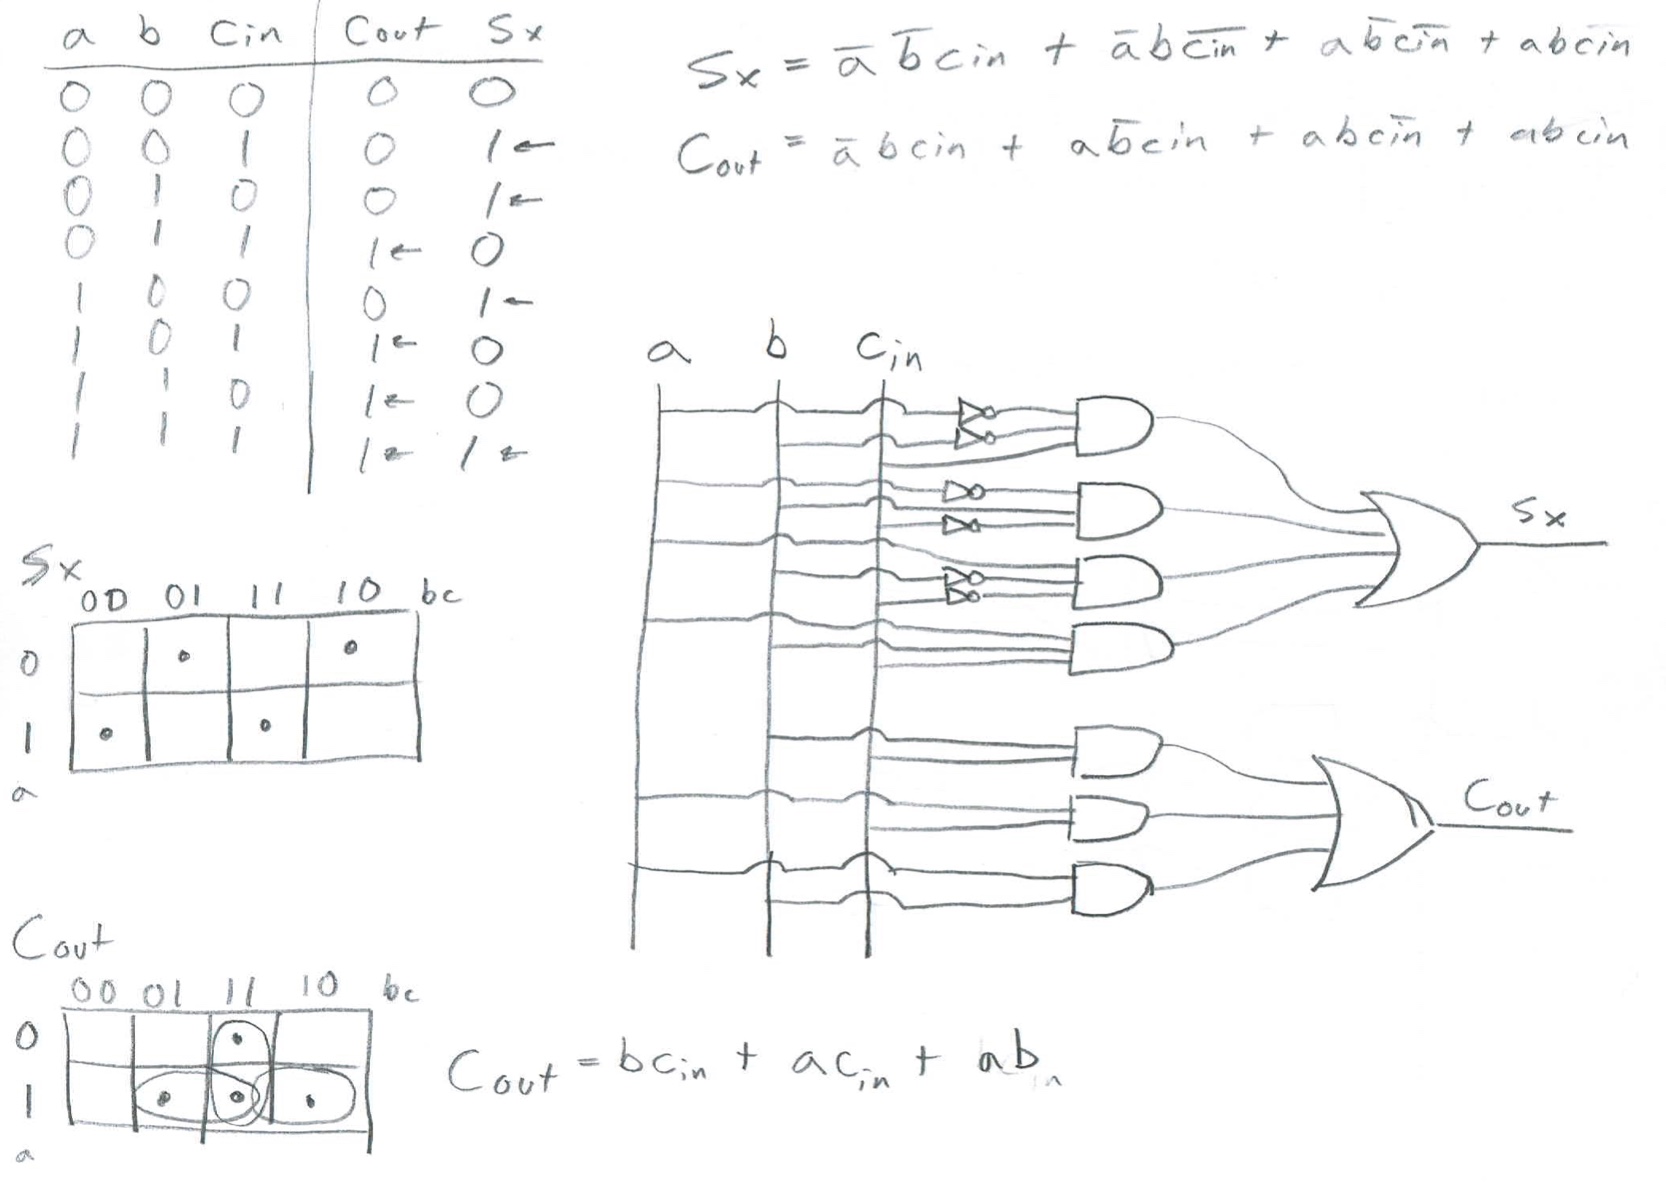 a b Cin Cout Sx
0 0 0 0 0
0 0 1 0 1←
0 1 0 0 1←
0 1 1 1← 0
1 0 0 0 1←
1 0 1 1← 0
1 1 0 1← 0
1 1 1 1← 1←
Sx = a̅ b̅ cin + a̅ b c̅i̅n̅ + a b̅ c̅i̅n̅ + abcin
Cout = a̅ b cin + a b̅ cin + ab c̅i̅n̅ + abcin
a b Cin
Sx
Cout
Sx
00 01 11 10 bc
0
1
a
Cout
00 01 11 10 bc
0
1
a
Cout = bcin + acin + ab